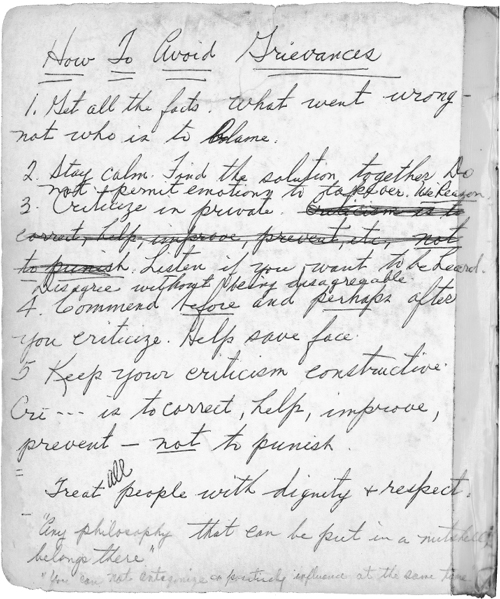 How To Avoid Grievances
1. Get all the facts. What went wrong -
not who is to blame.
2. Stay calm. Find the solution together Do
not permit emotions to take over. Use Reason
3. Criticize in private. Criticism is to
correct, help, improve, prevent, etc, not
to punish. Listen if you want to be heard.
Disagree without being disagreeable
4. Commend before and perhaps after
you criticize. Help save face.
5 Keep your criticism constructive.
Cri --- is to correct, help, improve,
prevent — not to punish.
Treat all people with dignity + respect.
"Any philosophy that can be put in a nutshell
belongs there"
"You can not antagonize & positively influence at the same time